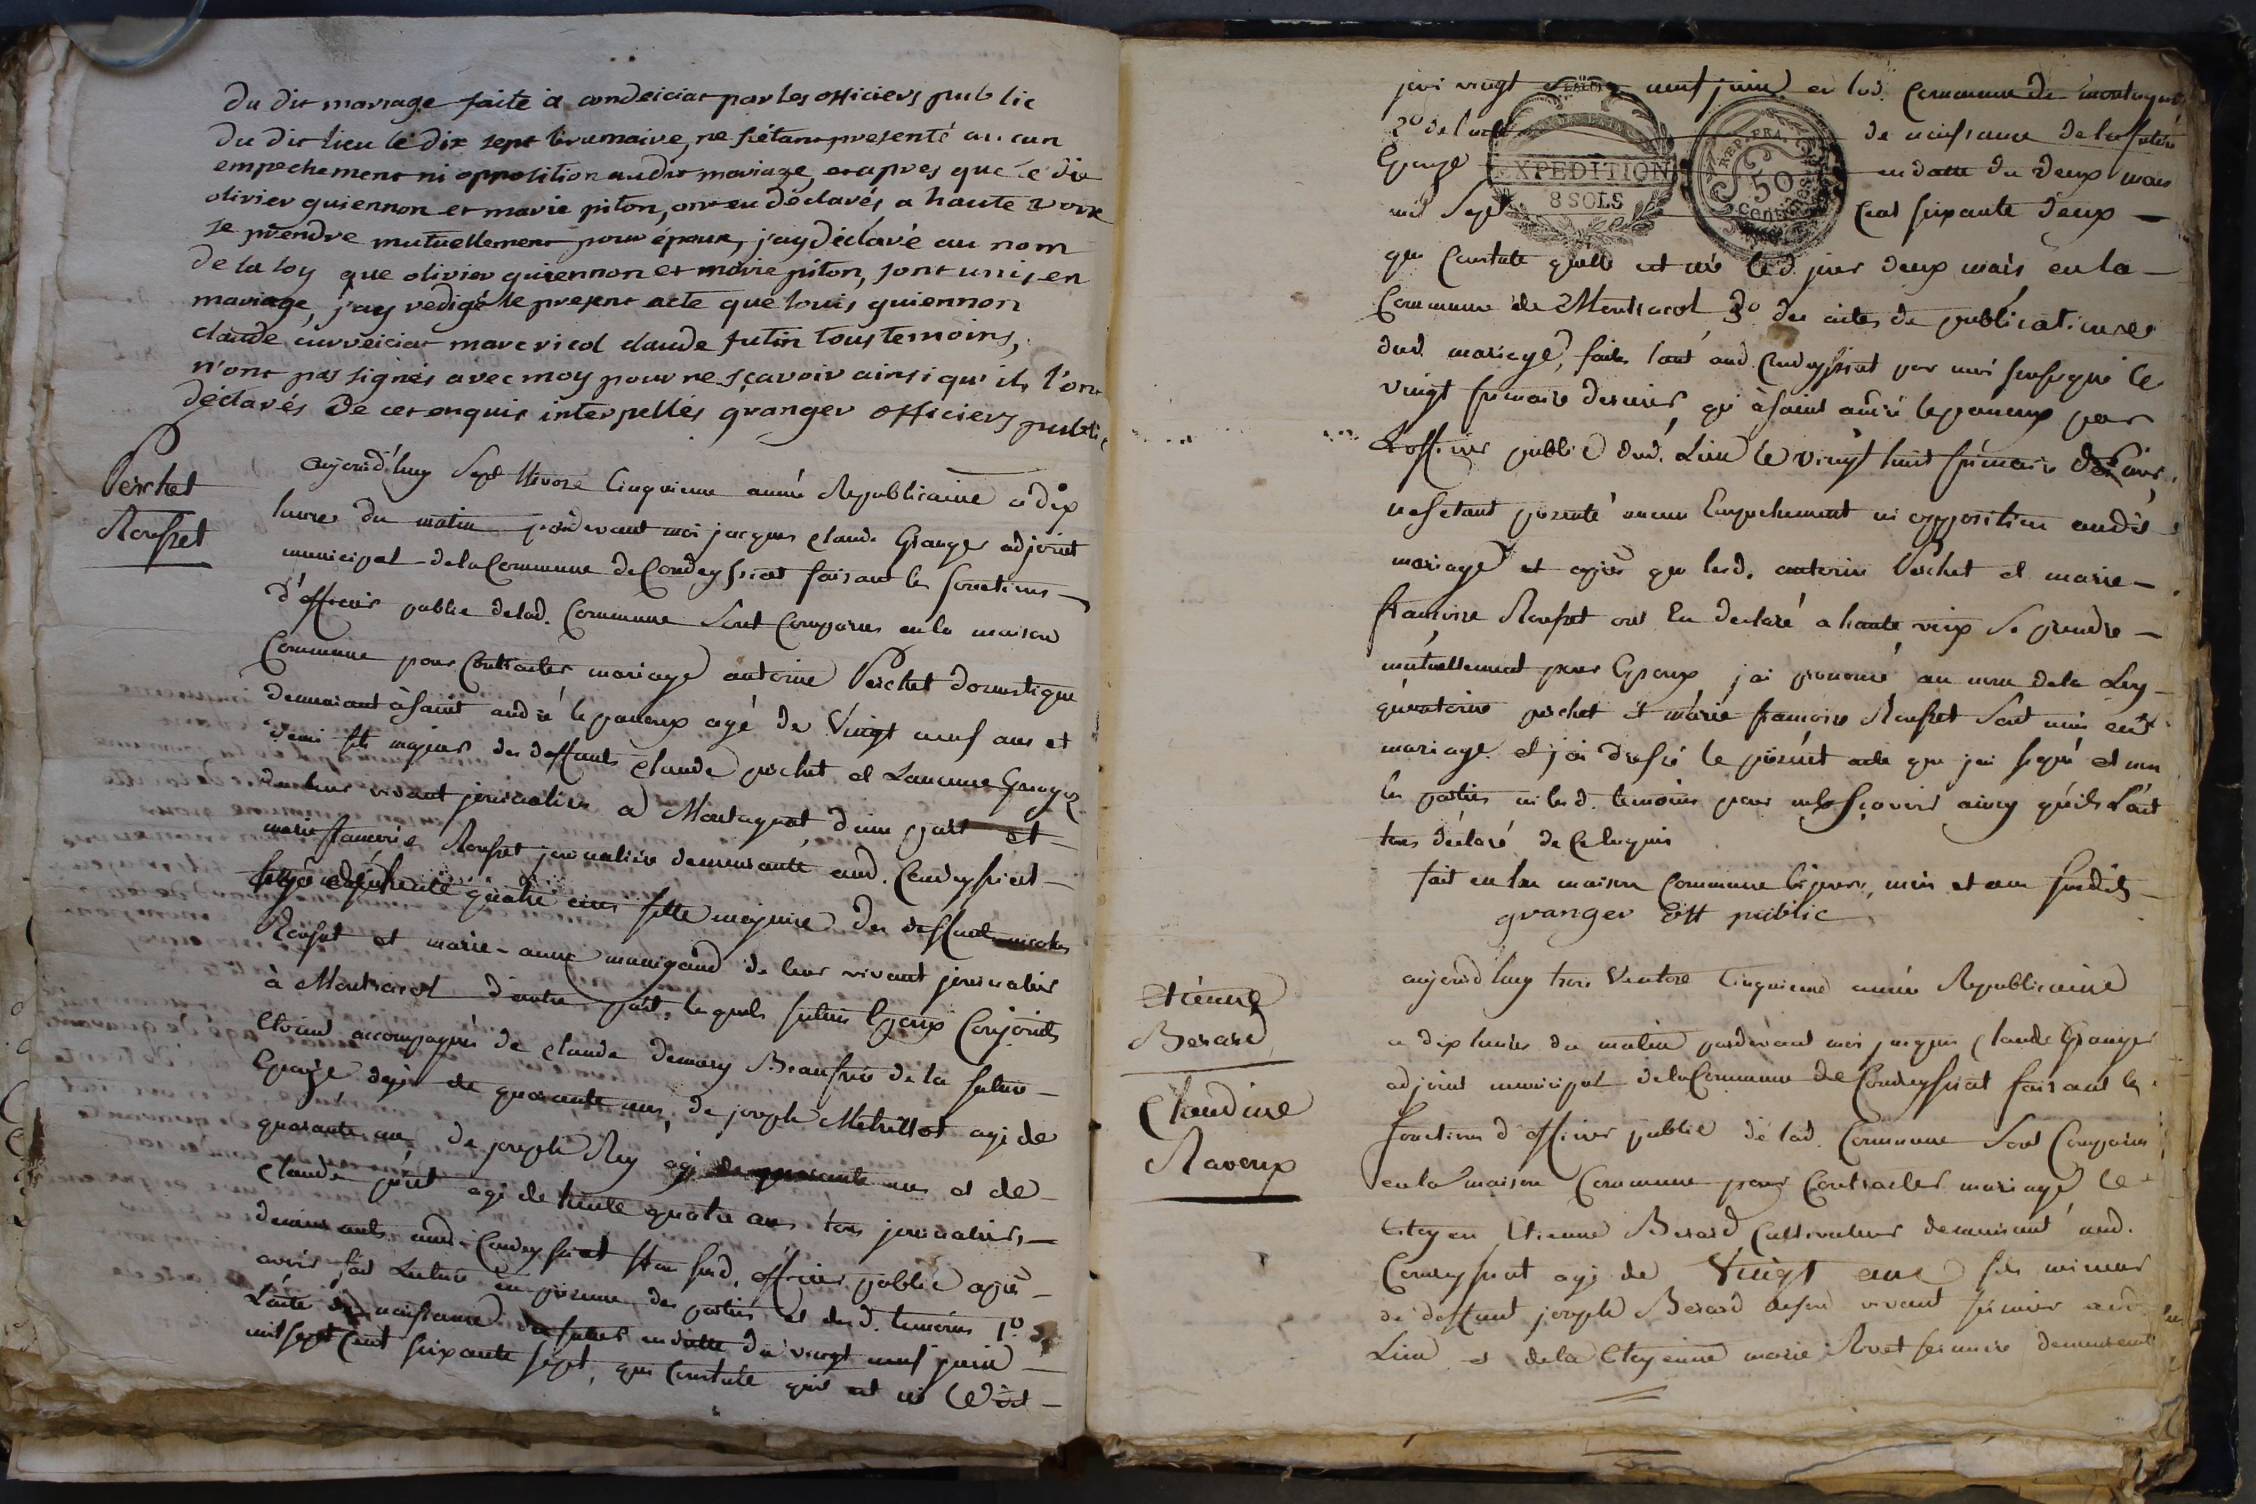 du dit mariage faite a condeiciat par les officiers public
du dit lieu le dix sept brumaire, ne s'étant presenté aucun
empechement ni opposition audit mariage, et apres que le dit
olivier guiennon et marie piton, ont eu déclarés a haute voix
se prendre mutuellement pour époux, j'ay déclaré au nom
de la loy que olivier guiennon et marie piton, sont unis en
mariage, j'ay redigé le present acte que louis guiennon
claude curveiciat marc ricol claude futin tous temoins,
n'ont pas signés avec moy pour ne sçavoir ainsi qu'ils l'ont
déclarés de ce enquis interpellés granger officiers public
Perchet
Rousset
aujourd'huy Sept Nivose Cinquieme année Republicaine a dix
heures du matin pardevant moi jacques claude Granger adjoint
municipal de la Commune de Condeyssiat faisant les fonctions
d'officier public de lad. Commune Sont Comparus en la maison
Commune pour Contracter mariage antoine Perchet domestique
demeurant à saint andré le panoux agé de Vingt neuf ans et
demi fils majeur des deffunts claude perchet et Laurence Granger
de leur vivant journaliers a Montagnat d'une part et
marie francoise Rousset journaliere demeurante aud. Condeyssiat
agée de trente quatre ans fille majeure des deffunts nicolas
Rousset et marie-anne manigand de leur vivant journaliers
à Montracol d'autre part, lesquels futurs Epoux Conjoints
étoient accompagnés de claude demary Beaufrere de la future
Epouze agé de quarante ans, de joseph Metrillot agé de
quarante ans de joseph Rey agé de quarante ans et de
claude pérét agé de trente quatre ans tous journaliers
demeurants aud. Condeyssiat Et ou susd. officier public après
avoir fait Lecture en présence des parties et desd. temoins 1º de
L'acte de naissance du futur en datte du vingt neuf juin
mil sept Cent soixante sept, qui Constate qu'il est né led.
jour vingt neuf juin en lad. Commune de montagnat
2º de l'acte de naissance de la future
Epouze en datte du deux mars
mil Sept Cent soixante deux
qui Constate qu'elle est née led. jour deux mars en la
Commune de Montracol 3º des actes de publications
dud. mariage, faites tant aud. Condeyssiat par moi susdit le
vingt frimaire dernier, qu'à saint andré le panoux par
L'officier public dud. Lieu le vingt huit frimaire dernier
ne s'etant présenté aucun Empechement ni opposition audit
mariage et après que lesd. antoine Perchet et marie
francoise Rousset ont Eu declaré a haute voix Se prendre
mutuellement pour Epoux j'ai prononcé au nom de la Loy
qu'antoine perchet et marie francoise Rousset Sont unis en
mariage et j'ai dressé le présent acte que j'ai signé et non
les parties ni lesd. temoins pour ne le sçavoir ainsy qu'ils L'ont
tous déclaré de ce Enquis
fait en la maison Commune les jour, mois et an susdits
granger off public
EXPEDITION
8 SOLS
REP. FRA.
50
Centimes
Etienne
Berard
Claudine
Ravoux
aujourd'huy trois Ventose Cinquieme année Republicaine
a dix heures du matin pardevant moi jacques claude Granger
adjoint municipal de la Commune de Condeyssiat faisant les
fonctions d'officier public de lad. Commune Sont Comparus
en la maison Commune pour Contracter mariage le
Citoyen Etienne Berard Cultivateur demeurant aud.
Condeyssiat agé de Vingt ans fils mineur
de deffunt joseph Berard de son vivant fermier aud.
Lieu et de la Citoyenne marie Rivet fermiere demeurant